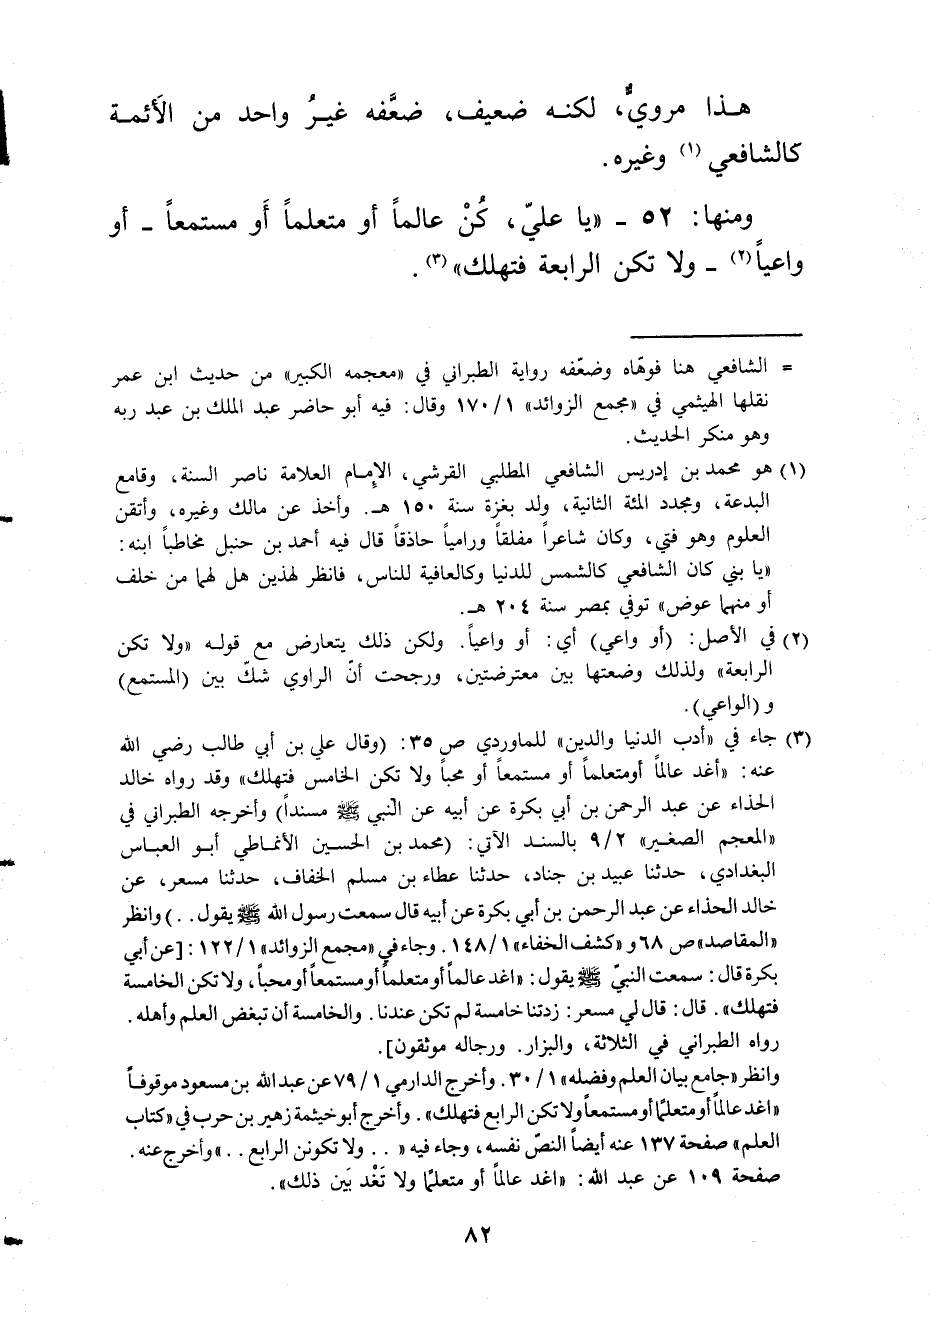 هـذا مرويٌّ، لكنـه ضعيف، ضعَّفه غيرُ واحد من الأئمـة
كالشافعي (١) وغيره.
ومنها: ٥٢ ـ «يا عليّ، كُنْ عالماً أو متعلماً أَو مستمعاً ـ أو
واعياً(٢) ـ ولا تكن الرابعة فتهلك»(٣).
= الشافعي هنا فوهّاه وضعّفه رواية الطبراني في «معجمه الكبير» من حديث ابن عمر
نقلها الهيثمي في «مجمع الزوائد» ١/ ١٧٠ وقال: فيه أبو حاضر عبد الملك بن عبد ربه
وهو منكر الحديث.
(١) هو محمد بن إدريس الشافعي المطلبي القرشي، الإمام العلامة ناصر السنة، وقامع
البدعة، ومجدد المئة الثانية، ولد بغزة سنة ١٥٠ هـ. وأخذ عن مالك وغيره، وأتقن
العلوم وهو فتي، وكان شاعراً مفلقاً ورامياً حاذقاً قال فيه أحمد بن حنبل مخاطباً ابنه:
«يا بني كان الشافعي كالشمس للدنيا وكالعافية للناس، فانظر لهذين هل لهما من خلف
أو منهما عوض» توفي بمصر سنة ٢٠٤ هـ.
(٢) في الأصل: (أو واعي) أي: أو واعياً. ولكن ذلك يتعارض مع قولـه «ولا تكن
الرابعة» ولذلك وضعتها بين معترضتين، ورجحت أنّ الراوي شكّ بين (المستمع)
و (الواعي).
(٣) جاء في «أدب الدنيا والدين» للماوردي ص ٣٥: (وقال علي بن أبي طالب رضي الله
عنه: «أغد عالماً أومتعلماً أو مستمعاً أو محباً ولا تكن الخامس فتهلك» وقد رواه خالد
الحذاء عن عبد الرحمن بن أبي بكرة عن أبيه عن النبي ﷺ مسنداً) وأخرجه الطبراني في
«المعجم الصغير» ٢/ ٩ بالسند الآتي: (محمد بن الحسين الأنماطي أبـو العبـاس
البغدادي، حدثنا عبيد بن جناد، حدثنا عطاء بن مسلم الخفاف، حدثنا مسعر، عن
خالد الحذاء عن عبد الرحمن بن أبي بكرة عن أبيه قال سمعت رسول الله ﷺ يقول . .) وانظر
«المقاصد» ص ٦٨ و «كشف الخفاء» ١/ ١٤٨. وجاء في «مجمع الزوائد» ١/ ١٢٢: [عن أبي
بكرة قال: سمعت النبيّ ﷺ يقول: «اغد عالماً أو متعلماً أو مستمعاً أو محباً، ولا تكن الخامسة
فتهلك». قال: قال لي مسعر: زدتنا خامسة لم تكن عندنا. والخامسة أن تبغض العلم وأهله.
رواه الطبراني في الثلاثة، والبزار. ورجاله موثقون].
وانظر «جامع بيان العلم وفضله» ١/ ٣٠. وأخرج الدارمي ١/ ٧٩ عن عبد الله بن مسعود موقوفاً
«اغد عالماً أو متعلمًا أو مستمعاً ولا تكن الرابع فتهلك». وأخرج أبو خيثمة زهير بن حرب في «كتاب
العلم» صفحة ١٣٧ عنه أيضاً النصّ نفسه، وجاء فيه « . . ولا تكونن الرابع . .» وأخرج عنه.
صفحة ١٠٩ عن عبد الله: «اغد عالماً أو متعلمًا ولا تَغْد بَين ذلك».
٨٢